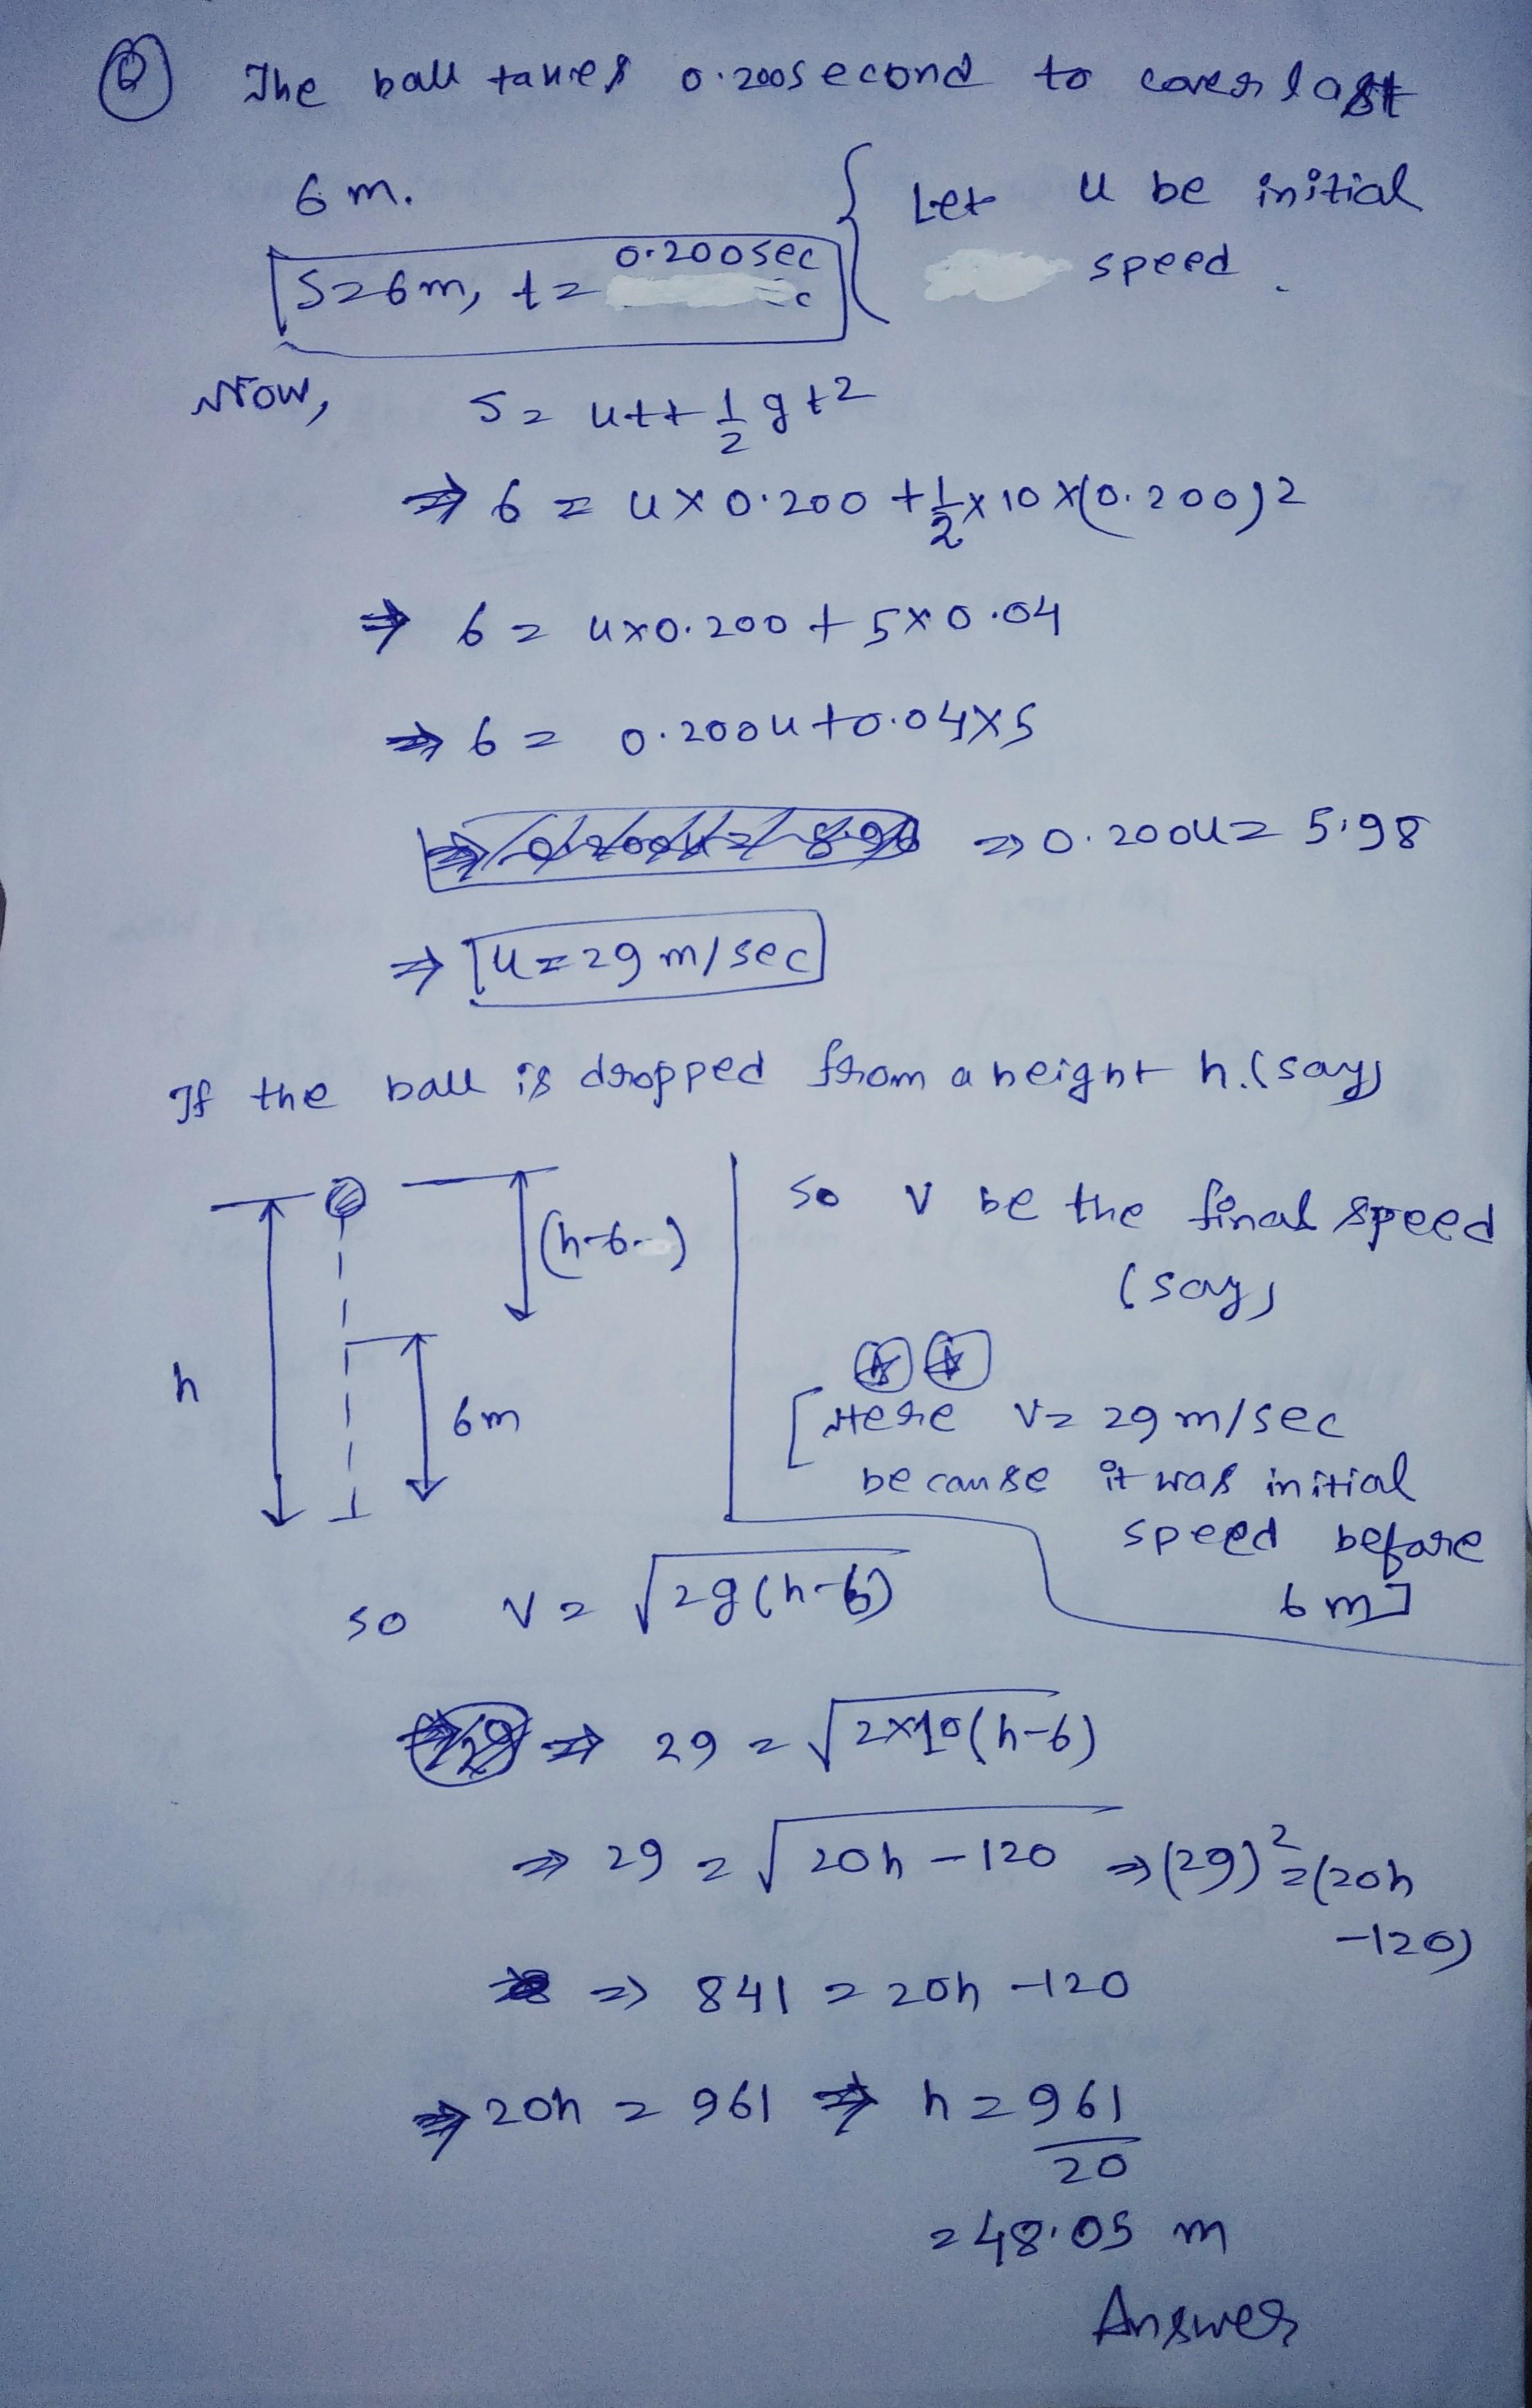 Q The ball takes 0.200second to cover last
6 m.
S=6m, t= 0.200sec
Let u be initial
speed.
Now, S = ut+ 1/2 gt2
⇒ 6 = u×0.200 + 1/2 × 10 ×(0.200)2
⇒ 6 = u×0.200 + 5×0.04
⇒ 6 = 0.200u+0.04×5
⇒ 0.200u= 5.98
⇒ u=29 m/sec
If the ball is dropped from a height h.(say)
(h-6)
h
6m
so v be the final speed
(say)
[Here v= 29 m/sec
because it was initial
speed before
6m]
so v = √2g(h-6)
⇒ 29 = √2×10(h-6)
⇒ 29 = √20h - 120 ⇒ (29)2=(20h
-120)
⇒ 841 = 20h -120
⇒ 20h = 961 ⇒ h = 961/20
= 48.05 m
Answer